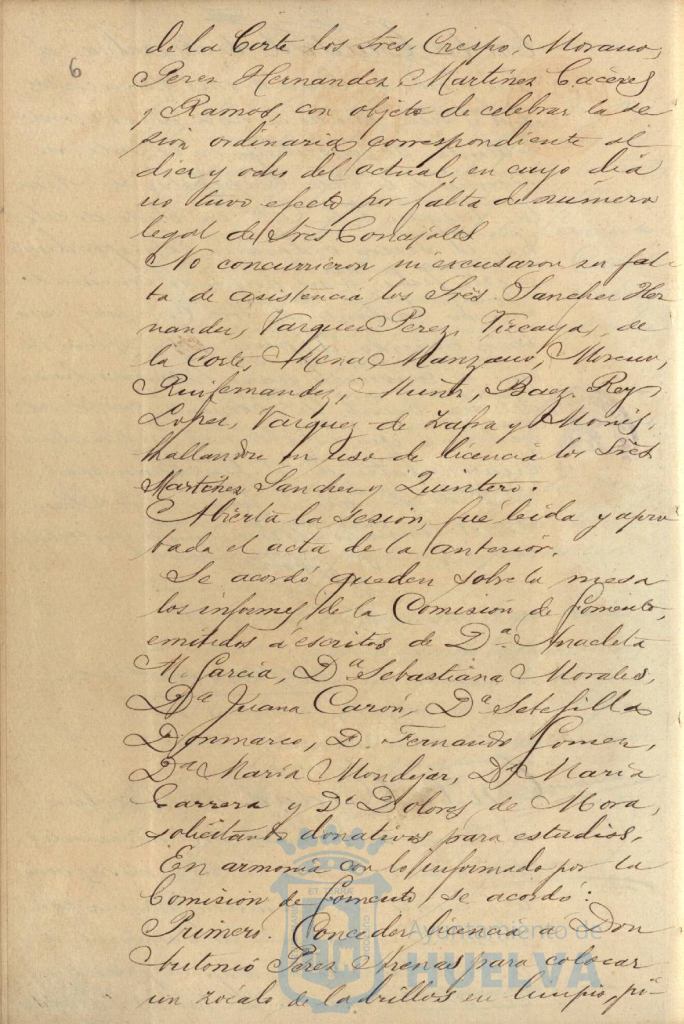 6
de la Corte los Sres. Crespo, Morano,
Perez Hernandez, Martinez Caceres
y Ramos, con objeto de celebrar la se
sion ordinaria correspondiente al
diez y ocho del actual, en cuyo dia
no tuvo efecto por falta de número
legal de Sres Concejales
No concurrieron ni excusaron su fal-
ta de asistencia los Sres. Sanchez Her
nandez, Vazquez Perez, Vizcaya, de
la Corte, Mena Manzano, Moreno,
Ruifernandez, Muñiz, Baez, Rey,
Lopez, Vazquez de Zafra y Monis,
hallandose en uso de licencia los Sres
Martinez Sanchez y Quintero.
Abierta la sesion, fué leida y apro
bada el acta de la anterior.
Se acordó queden sobre la mesa
los informes de la Comisión de Fomento,
emitidos á escritos de Dª. Anacleta
M. García, Dª Sebastiana Morales,
Dª Juana Carón, Dª Setefilla
Donmarco, D. Fernando Gomez,
Dª María Mondejar, Dª María
Carrera y Dª Dolores de Mora,
solicitando donativos para estudios.
En armonia con lo informado por la
Comision de Fomento se acordó:
Primero. Conceder licencia a Don
Antonio Perez Arenas para colocar
un zócalo de ladrillos en limpio, pi-
Ayuntamiento de
HUELVA